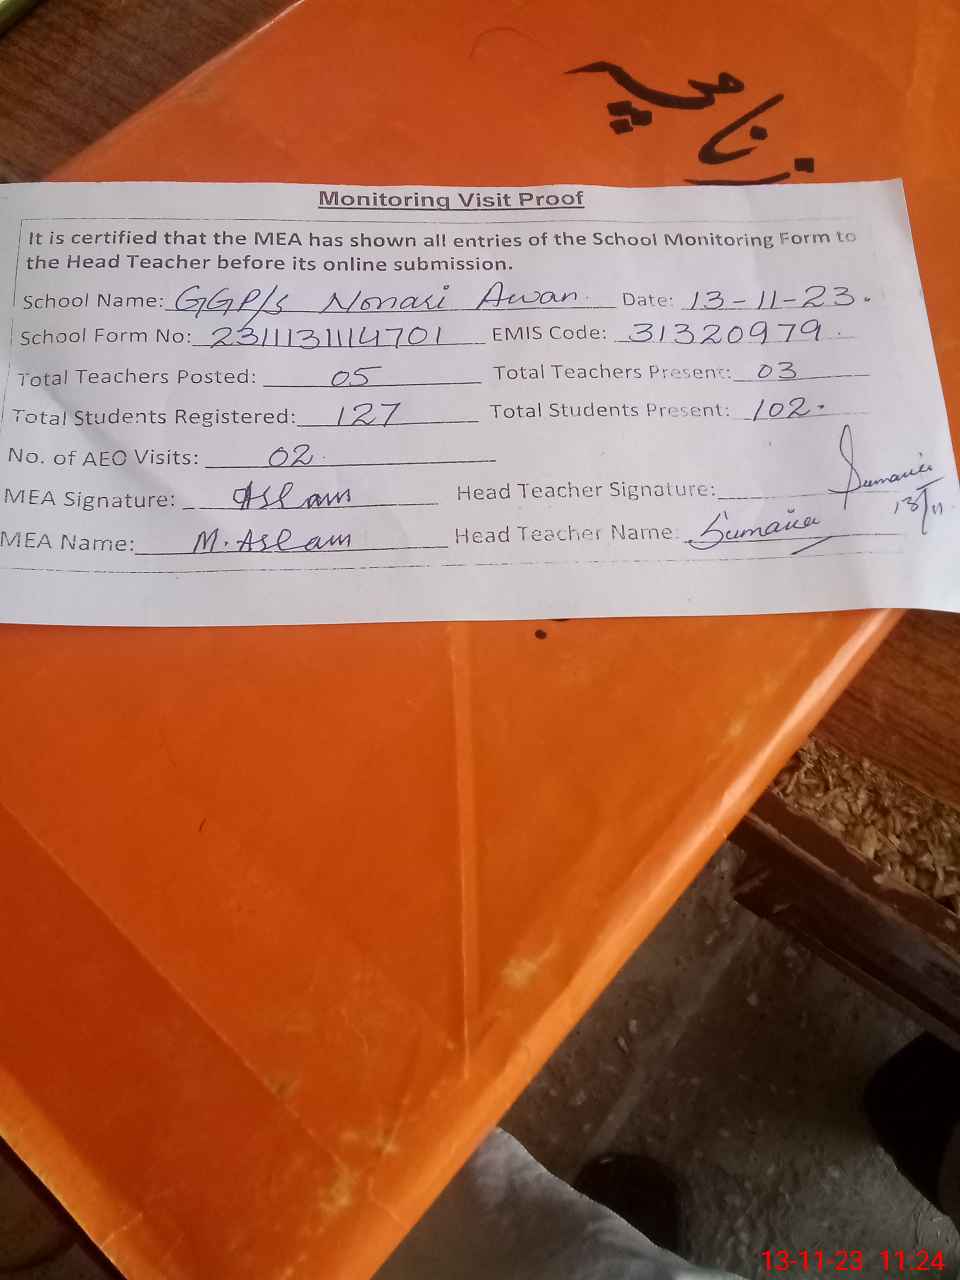 ز نامچہ
Monitoring Visit Proof
It is certified that the MEA has shown all entries of the School Monitoring Form to
the Head Teacher before its online submission.
School Name: GGP/s Nonari Awan. Date: 13-11-23.
School Form No: 2311131114701 EMIS Code: 31320979.
Total Teachers Posted: 05 Total Teachers Present: 03
Total Students Registered: 127 Total Students Present: 102.
No. of AEO Visits: 02.
MEA Signature: Aslam Head Teacher Signature: Sumaira 13/11.
MEA Name: M. Aslam Head Teacher Name: Sumaira
13-11-23 11:24